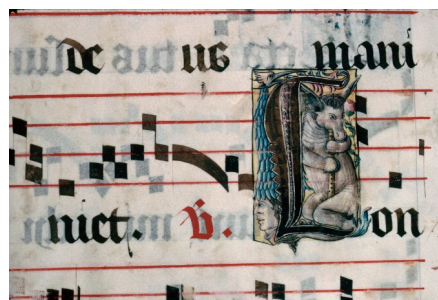 de us mani
nict. V. Lon